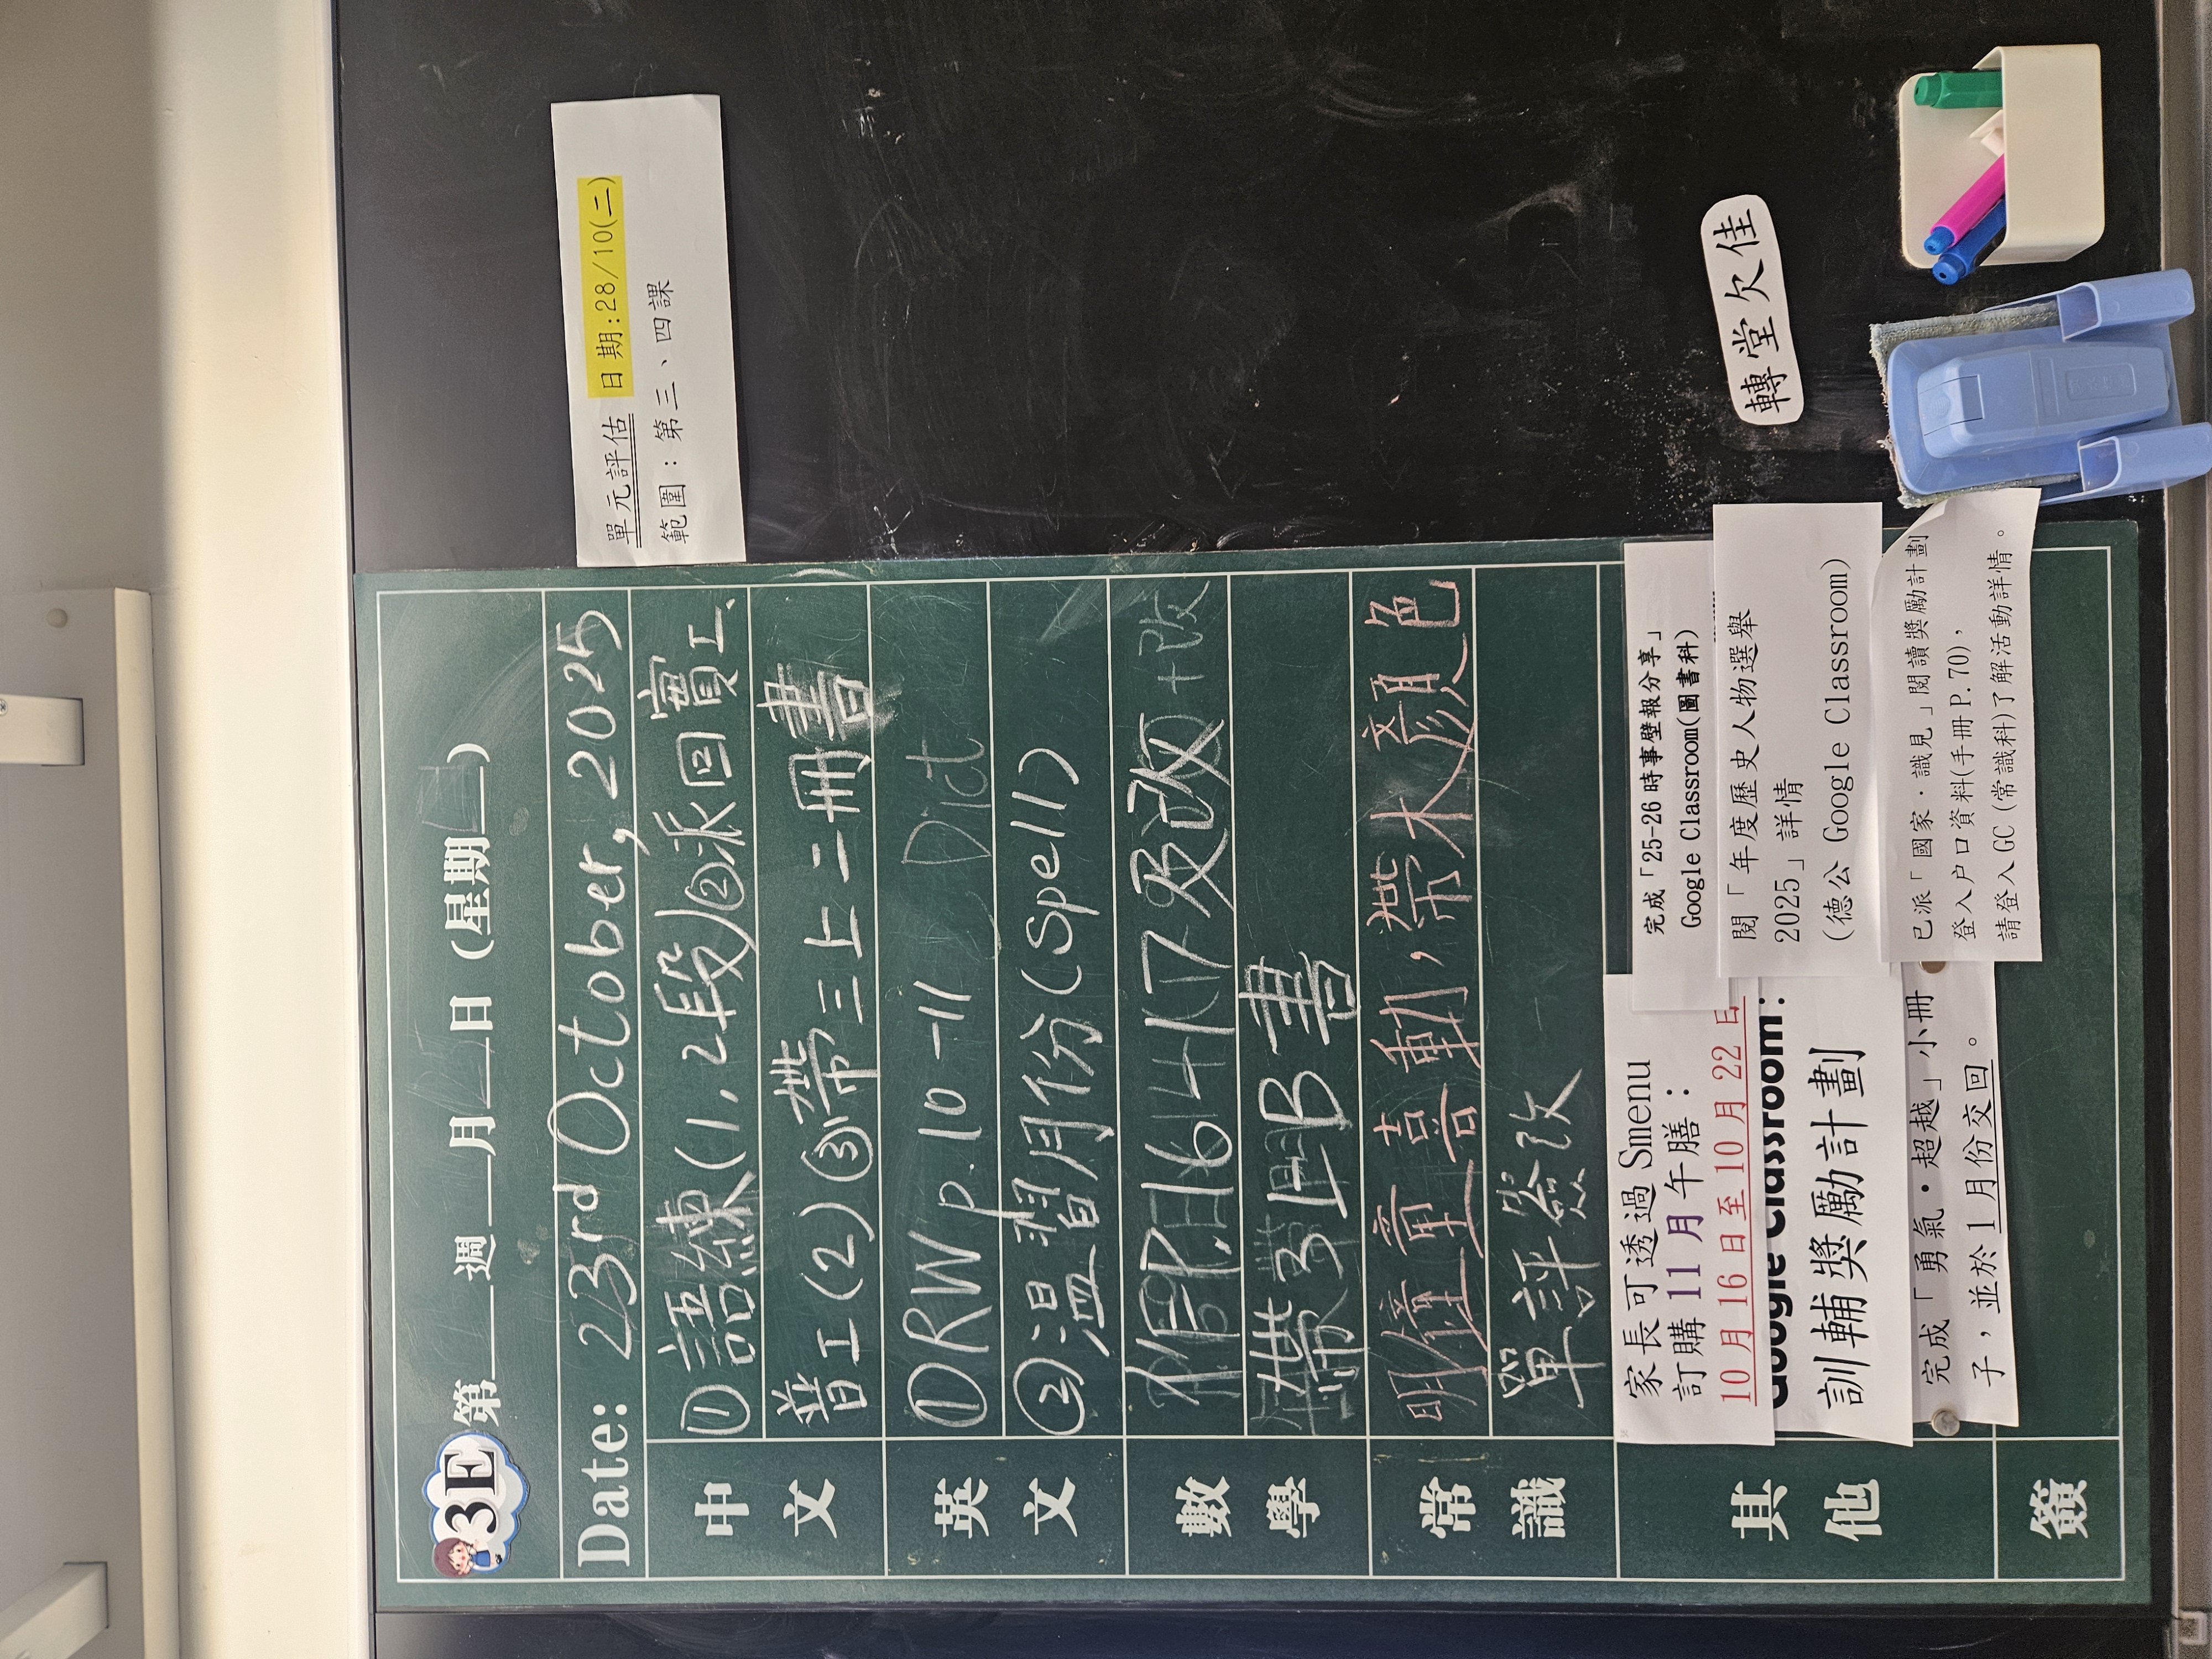 3E 第 週 月 日(星期 )
Date: 23rd October, 2025
中文
①語練(1,2段)②派回實工、
普工(2)③帶三上二冊書
英文
①RW p.10-11 Dict
②溫習月份(Spell)
數學
P.H16,H17及改+改
帶3上B書
常識
明 帶木顏色
單評簽改
其他
家長可透過 Smenu
訂購 11 月午膳:
10 月 16 日至 10 月 22 日
Google Classroom:
訓輔獎勵計劃
完成「勇氣・超越」小冊
子,並於 1 月份交回。
完成「25-26 時事壁報分享」
Google Classroom(圖書科)
閱「年度歷史人物選舉
2025」詳情
(德公 Google Classroom)
已派「國家・識見」閱讀獎勵計劃
登入户口資料(手冊P.70),
請登入GC(常識科)了解活動詳情。
簽
單元評估 日期:28/10(二)
範圍:第三、四課
轉堂欠佳